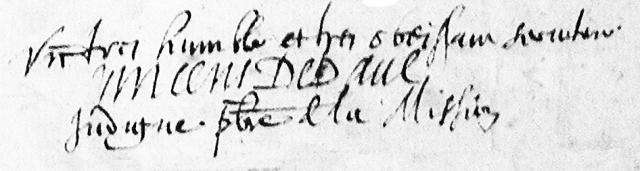 Vre tres humble et tres obeissant serviteur
VINCENT DEPAUL
Indigne pbre de la Mission